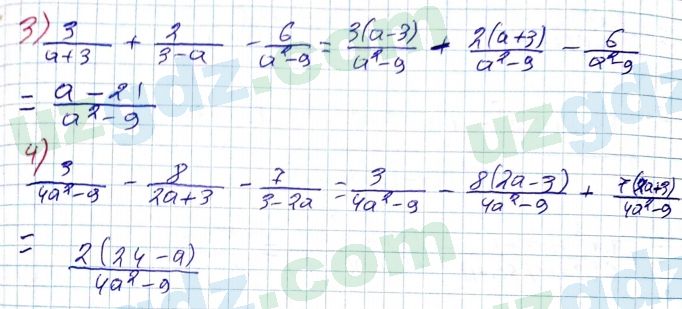 3) 3/(a+3) + 2/(3-a) - 6/(a²-9) = 3(a-3)/(a²-9) + 2(a+3)/(a²-9) - 6/(a²-9)
= (a-21)/(a²-9)
4) 3/(4a²-9) - 8/(2a+3) - 7/(3-2a) = 3/(4a²-9) - 8(2a-3)/(4a²-9) + 7(2a+3)/(4a²-9)
= 2(24-a)/(4a²-9)
uzgdz.com